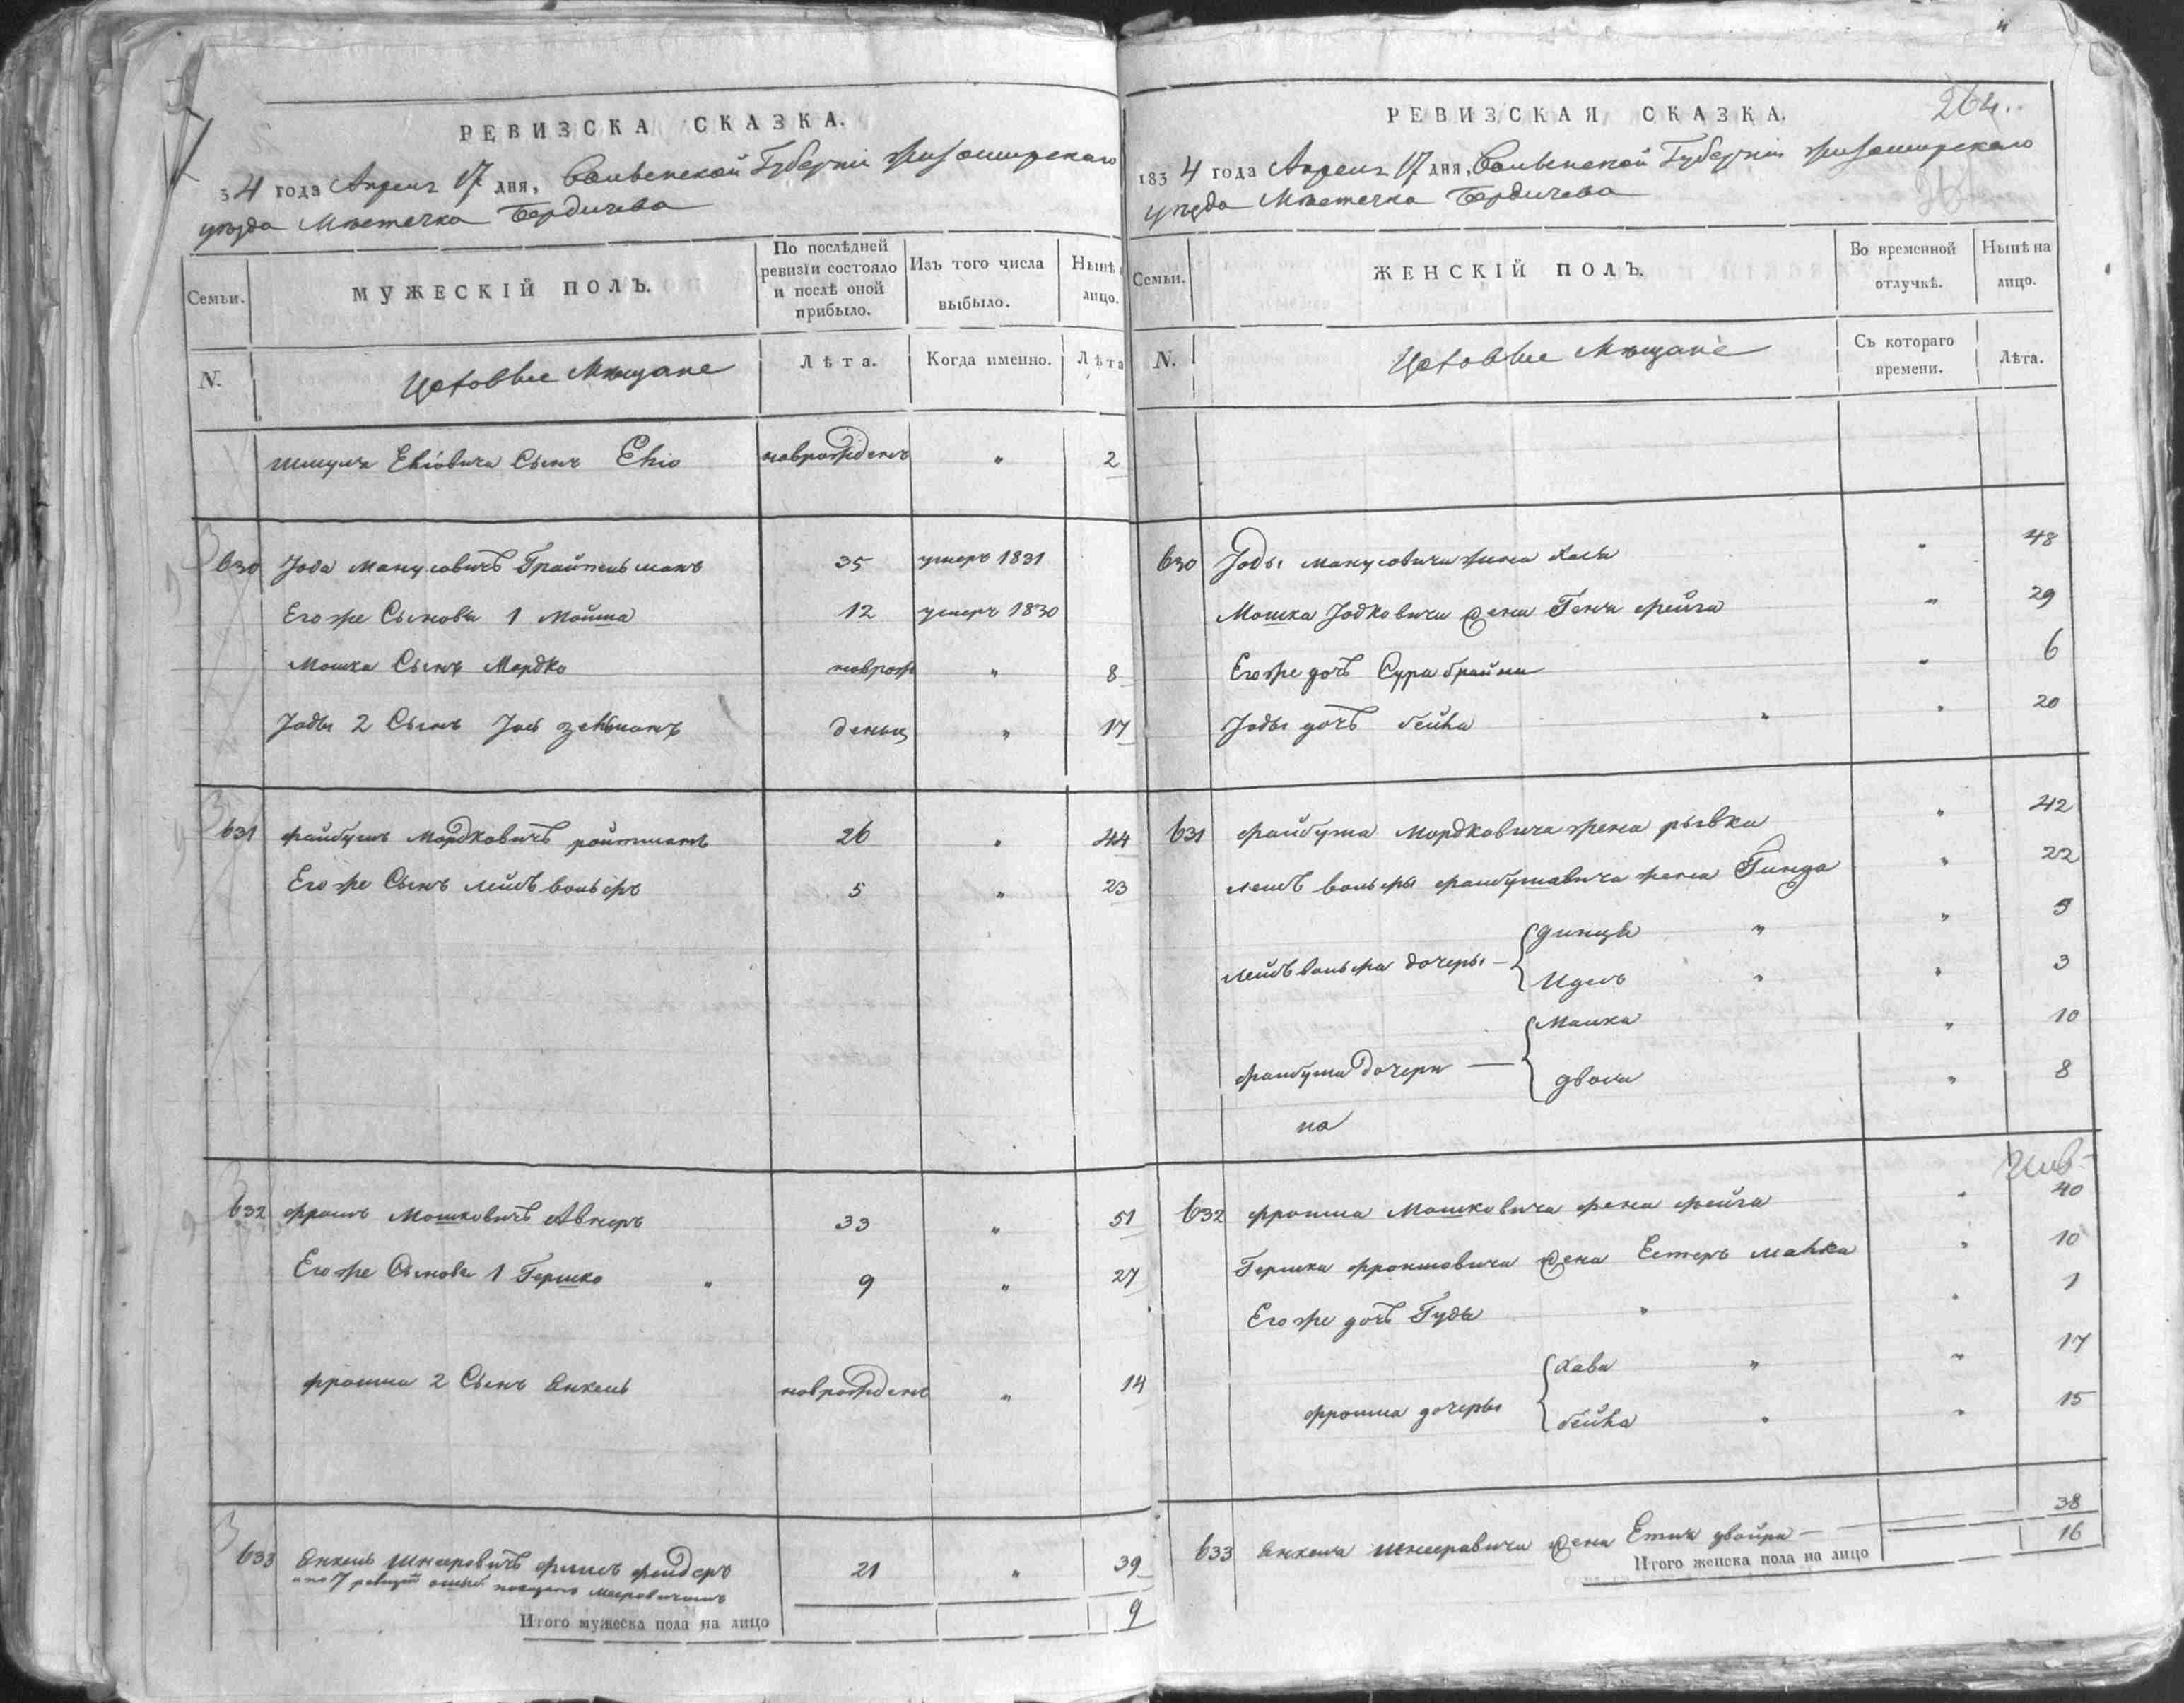 РЕВИЗСКА СКАЗКА.
34 года Апреля 17 дня, Волынской Губерніи Житомирскаго
уѣзда Мѣстечка Бердичева
Семьи.
МУЖЕСКІЙ ПОЛЪ.
По послѣдней ревизіи состояло и послѣ оной прибыло.
Изъ того числа выбыло.
Нынѣ лицо.
N.
Цеховые Мѣщане
Лѣта.
Когда именно.
Лѣта
Шмуля Ehioвича Сынъ Ehio новорожденъ " 2
630 Іода Манусовичъ Грайтельманъ 35 умеръ 1831
Его же Сыновья 1 Мойша 12 умеръ 1830
Мошка Сынъ Мордко новрож " 8
Іоды 2 Сынъ Іось деныц " 17
631 Файбушъ Мордковичъ ройтманъ 26 " 44
Его же Сынъ лейбъ вольфъ 5 " 23
632 фроимъ Мошковичъ Авнеръ 33 " 51
Его же Сыновья 1 Гершко " 9 " 27
фроима 2 Сынъ Янкель новрожденъ " 14
633 Янкель Шнееровичъ 21 " 39
а по 7 ревизіи
Итого мужеска пола на лицо 9
264.
РЕВИЗСКАЯ СКАЗКА.
1834 года Апреля 17 дня, Волынской Губерніи Житомирскаго
уѣзда Мѣстечка Бердичева
Семьи.
ЖЕНСКІЙ ПОЛЪ.
Во временной отлучкѣ.
Нынѣ на лицо.
N.
Цеховые Мѣщане
Съ котораго времени.
Лѣта.
630 Іоды Манусовича жена Хася " 48
Мошка Іодковича жена Геня фейга " 29
Его же дочь Сура брайна " 6
Іоды дочь бейhа " " 20
631 Файбуша Мордковича жена рывка " 42
лейбъ вольфы файбушовича жена Гинда " 22
лейбъ вольфа дочеры — динця " " 5
Идесъ " " 3
файбуша дочери — Малка " 10
двося " 8
632 фроима Мошковича жена фейга " 40
Гершка фроимовича жена Естеръ маhка " 10
Его же дочь Гудя " " 1
фроима дочеры Хава " " 17
бейhа " " 15
633 Янкеля Шнееровича жена Етля двойра — 38
Итого женска пола на лицо 16